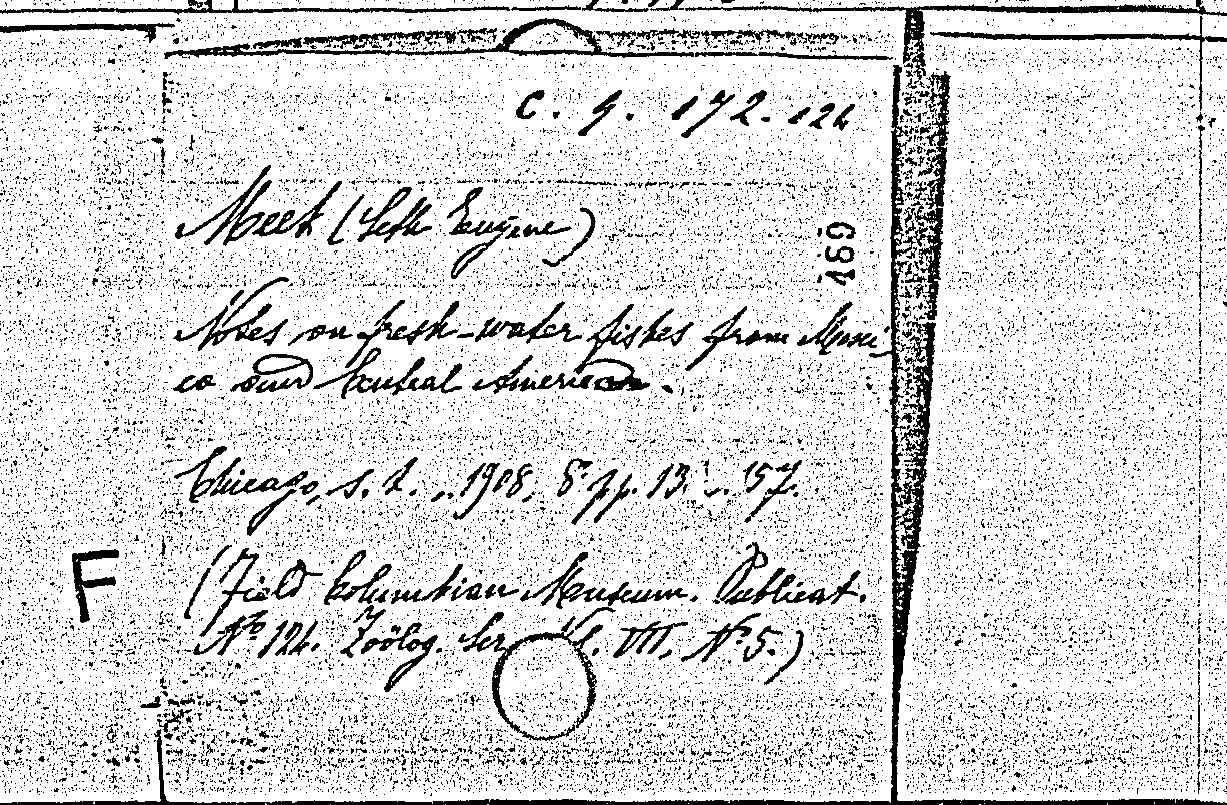 C. 9. 172. 124
Meek (Seth Eugene)
469
Notes on fresh-water fishes from Mexi-
co and Central American.
Chicago, s. t., 1908, 8° pp. 13.. - 157.
F
(Field Columbian Museum. Publicat.
N° 124. Zoölog. Ser. Vol. VII, N° 5.)